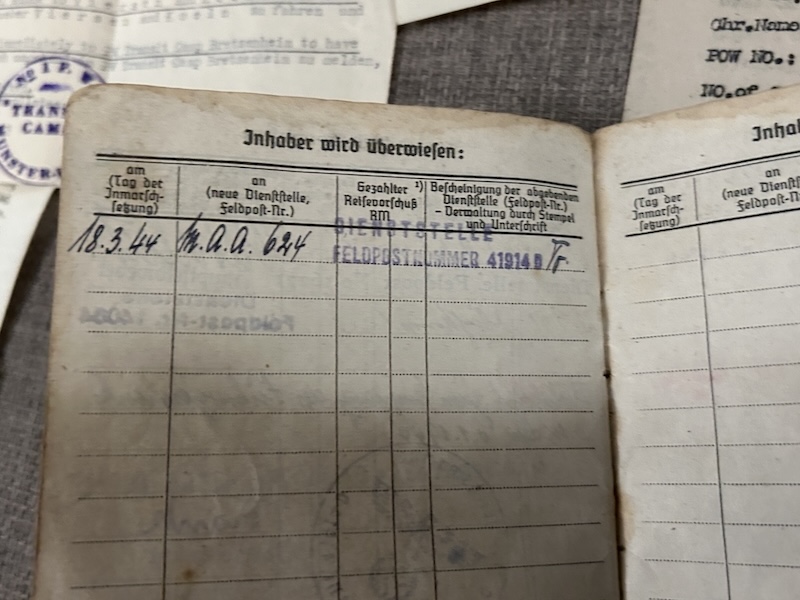 fahren und
to have
Transit Camp Bretzenheim zu melden,
TRANS
CAM
Chr.Name
POW NO.:
NO.of
Inhaber wird überwiesen:
am
(Tag der
Inmarsch-
setzung)
an
(neue Dienststelle,
Feldpost-Nr.)
Gezahlter ¹)
Reisevorschuß
RM
Bescheinigung der abgebenden
Dienststelle (Feldpost-Nr.)
- Verwaltung durch Stempel
und Unterschrift
DIENSTSTELLE
18.3.44 M.A.A. 624 FELDPOSTNUMMER 41914 D
Inhab
am
(Tag der
Inmarsch-
setzung)
an
(neue Dienst
Feldpost-N